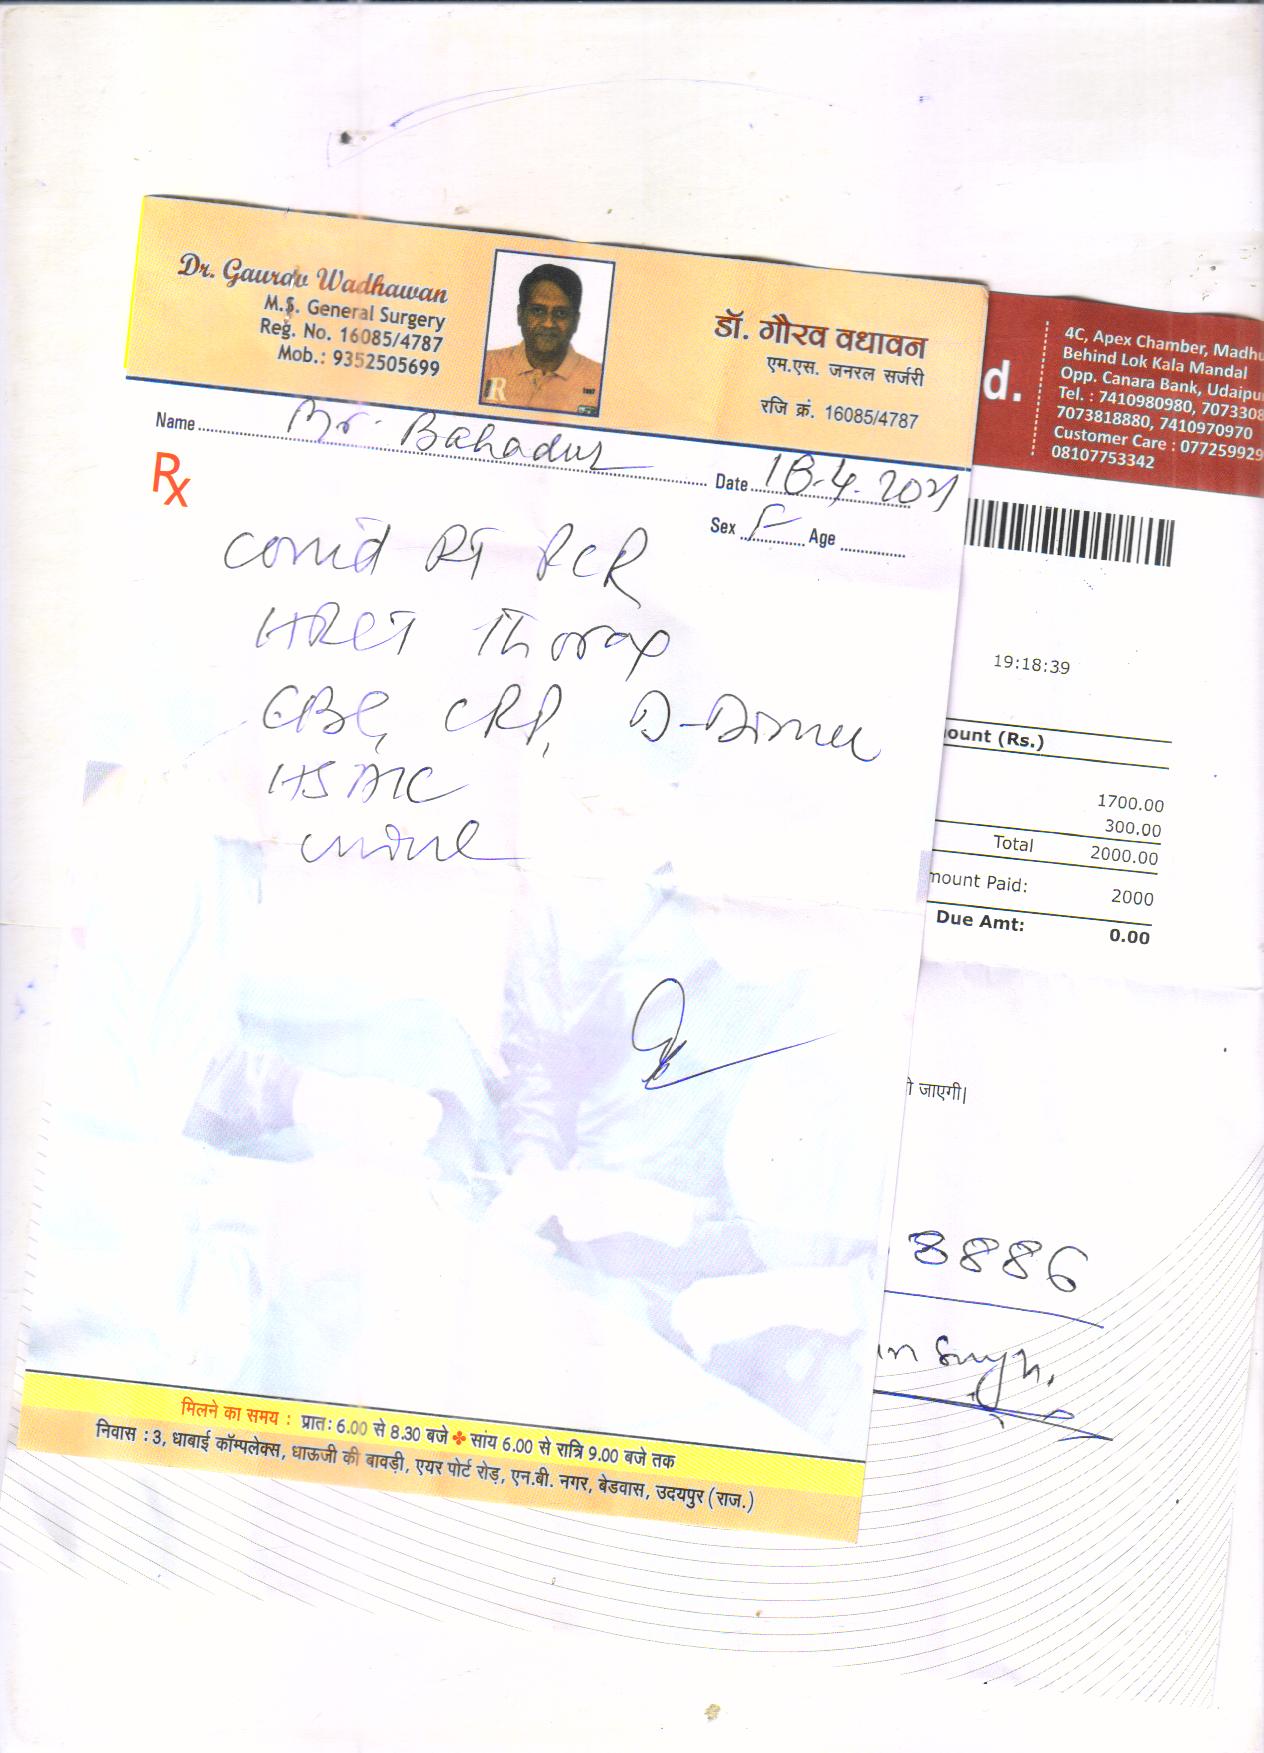 Dr. Gaurav Wadhawan
M.S. General Surgery
Reg. No. 16085/4787
Mob.: 9352505699
R
डॉ. गौरव वधावन
एम.एस. जनरल सर्जरी
रजि क्रं. 16085/4787
Name Mr. Bahadur
Date 18.4.2021
Sex F Age
Rx
Covid RT PCR
HRCT Thorax
CBC, CRP, D-Dimer
HbA1C
मिलने का समय : प्रातः 6.00 से 8.30 बजे सांय 6.00 से रात्रि 9.00 बजे तक
निवास : 3, धाबाई कॉम्पलेक्स, धाऊजी की बावड़ी, एयर पोर्ट रोड़, एन.बी. नगर, बेडवास, उदयपुर (राज.)
d.
4C, Apex Chamber, Madhu
Behind Lok Kala Mandal
Opp. Canara Bank, Udaipu
Tel. : 7410980980, 7073308
7073818880, 7410970970
Customer Care : 077259929
08107753342
19:18:39
ount (Rs.)
1700.00
300.00
Total 2000.00
mount Paid: 2000
Due Amt: 0.00
ी जाएगी।
8886
Singh.